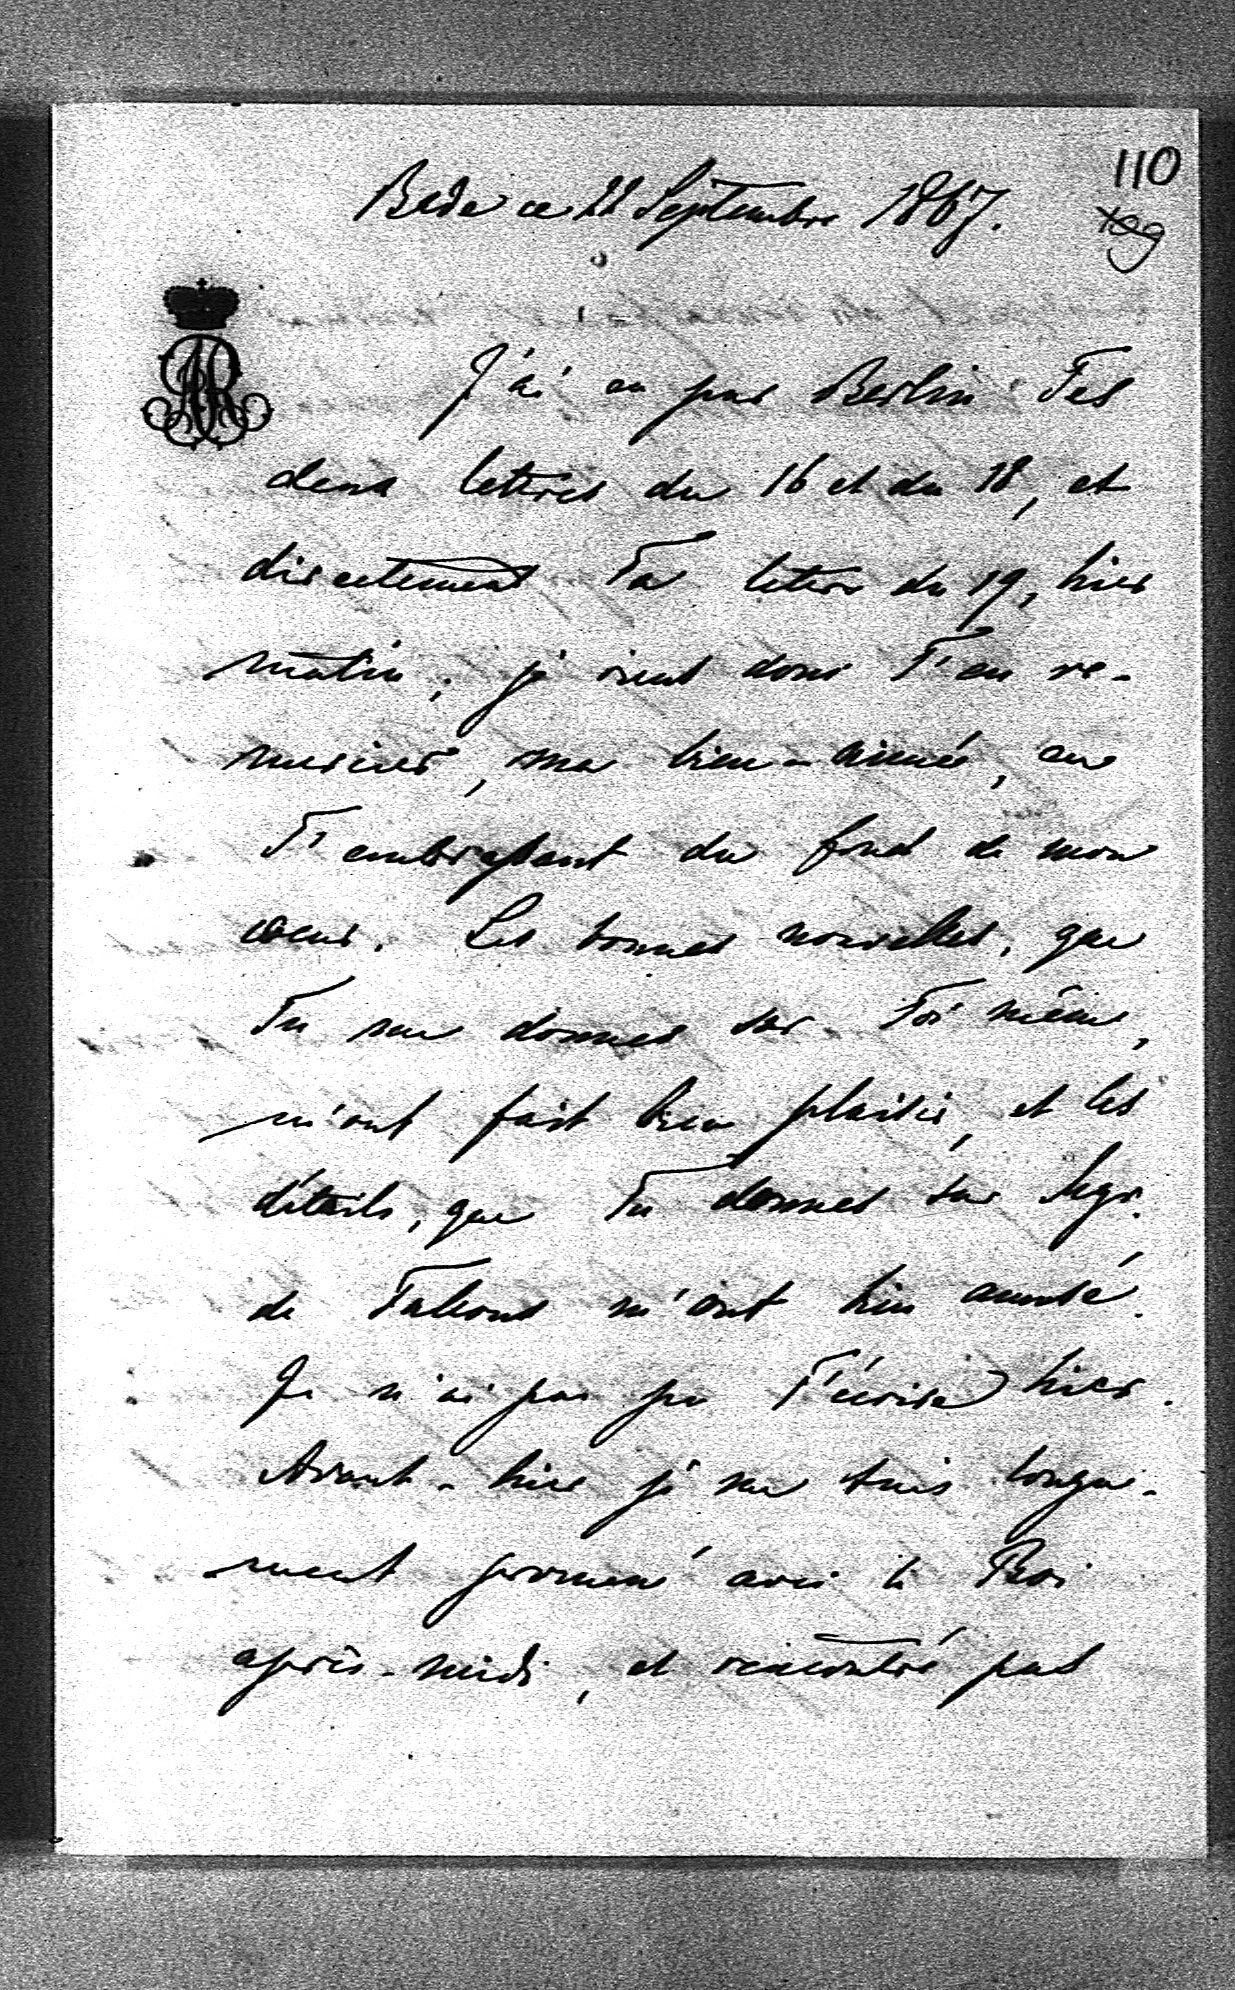 110
109
Bade ce 22 Septembre 1867.
J'ai eu par Berlin Tes
deux lettres du 16 et du 18, et
directement Ta lettre du 19, hier
matin; je viens donc T'en re-
mercier, ma bien-aimée, en
T'embrassant du fond de mon
coeur. Les bonnes nouvelles, que
Tu me donnes sur Toi même,
m'ont fait bien plaisir, et les
détails, que Tu donnes sur Mgr.
de m'ont bien amusé.
Je n'ai pas pu T'écrire hier.
Avant-hier je me suis longue-
ment promené avec le Roi
après-midi, et rencontré pas